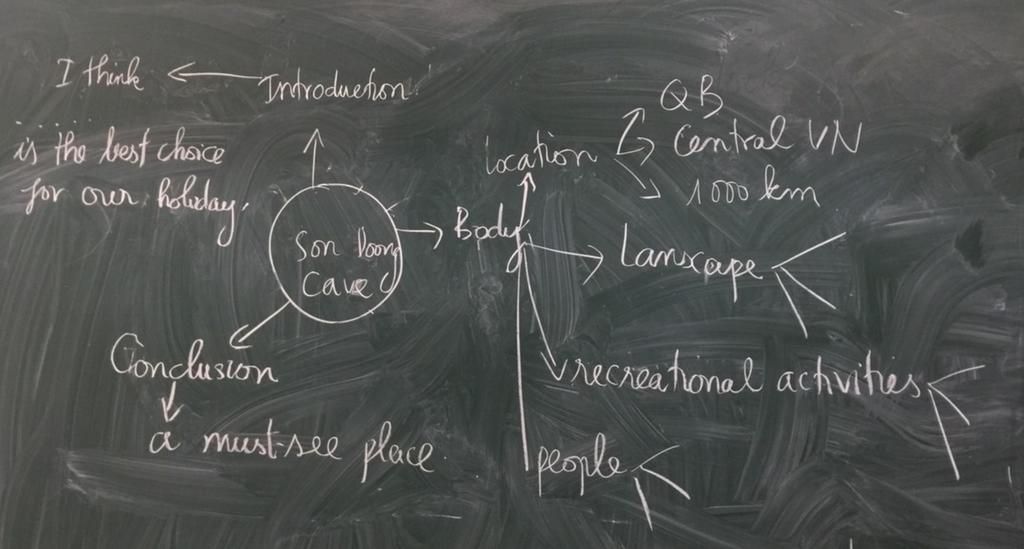 I think
Introduction
is the best choice
for our holiday.
Son Doong
Cave
Body
location
QB
Central VN
1000 km
Lanscape
recreational activities
people
Conclusion
a must-see place.